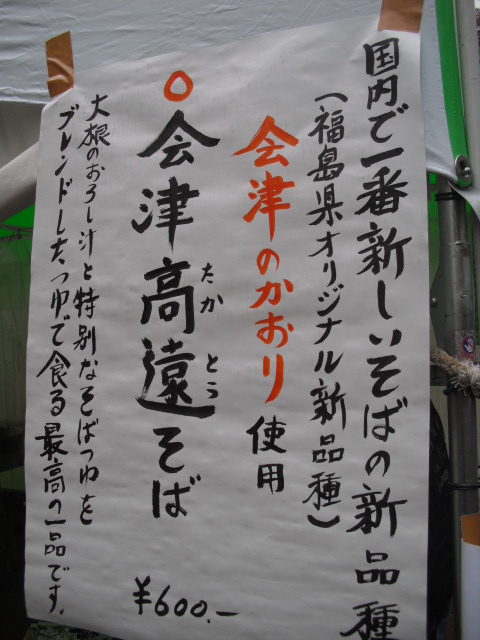 国内で一番新しいそばの新品種
(福島県オリジナル新品種)
会津のかおり使用
○会津高遠そば
たか とう
大根のおろし汁と特別なそばつゆを
ブレンドしたつゆで食る最高の一品です。
¥600.-